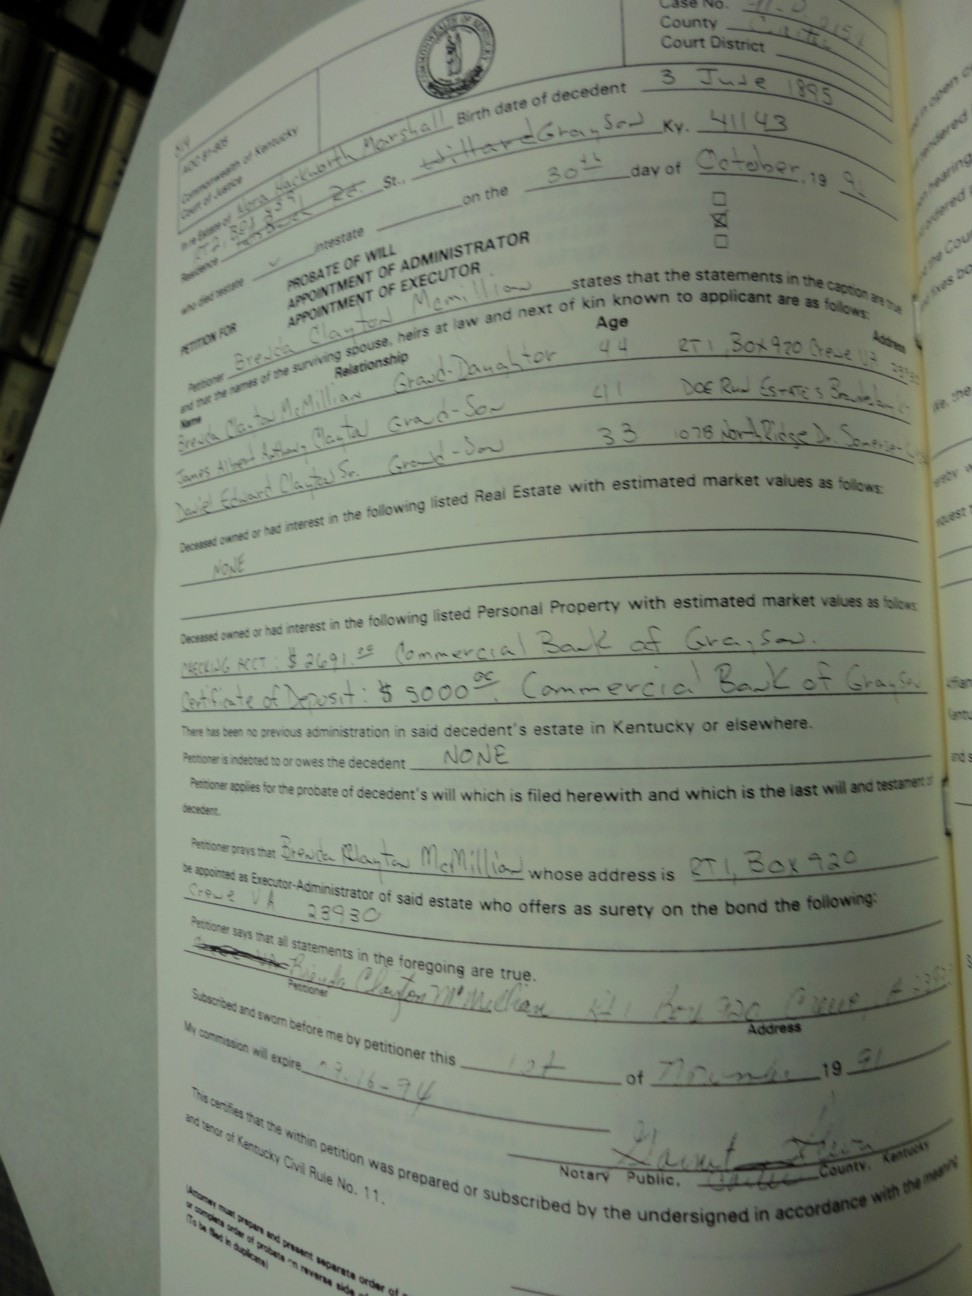 AOC-
Commonwealth of Kentucky
Court of Justice
COMMONWEALTH OF KENTUCKY
Case No.
County
Court District
In re Estate of Nora Hackworth Marshall Birth date of decedent 3 June 1895
Residence RT 2, Box St., Willard Grayson Ky. 41143
who died testate intestate ✓ on the 30th day of October, 19 91
PETITION FOR
PROBATE OF WILL ☐
APPOINTMENT OF ADMINISTRATOR ☒
APPOINTMENT OF EXECUTOR ☐
Petitioner Brenda Clayton Mcmillian states that the statements in the caption are true
and that the names of the surviving spouse, heirs at law and next of kin known to applicant are as follows:
Name Relationship Age Address
Brenda Clayton McMillian Grand-Daughtor 44 RT 1, Box 920 Crewe VA 23930
James Albert Anthony Clayton Grand-Son 41 DOE Run Estate's
David Edward Clayton Sr. Grand-Son 33 1078 North Ridge Dr. Somerset
Deceased owned or had interest in the following listed Real Estate with estimated market values as follows:
NONE
Deceased owned or had interest in the following listed Personal Property with estimated market values as follows:
CHECKING ACCT: $2691.00 Commercial Bank of Grayson.
Certificate of Deposit: $5000.00 Commercial Bank of Grayson
There has been no previous administration in said decedent's estate in Kentucky or elsewhere.
Petitioner is indebted to or owes the decedent NONE
Petitioner applies for the probate of decedent's will which is filed herewith and which is the last will and testament of
decedent.
Petitioner prays that Brenda Clayton McMillian whose address is RT 1, Box 920
be appointed as Executor-Administrator of said estate who offers as surety on the bond the following:
Crewe VA 23930
Petitioner says that all statements in the foregoing are true.
Brenda Clayton McMillian Rt 1 Box 920 Crewe,
Petitioner Address
Subscribed and sworn before me by petitioner this 1st of November 19 91
My commission will expire 16-94
Notary Public, Carter County, Kentucky
This certifies that the within petition was prepared or subscribed by the undersigned in accordance with the meaning
and tenor of Kentucky Civil Rule No. 11.
(Attorney must prepare and present separate order of
or complete order of probate on reverse side
(To be filed in duplicate)